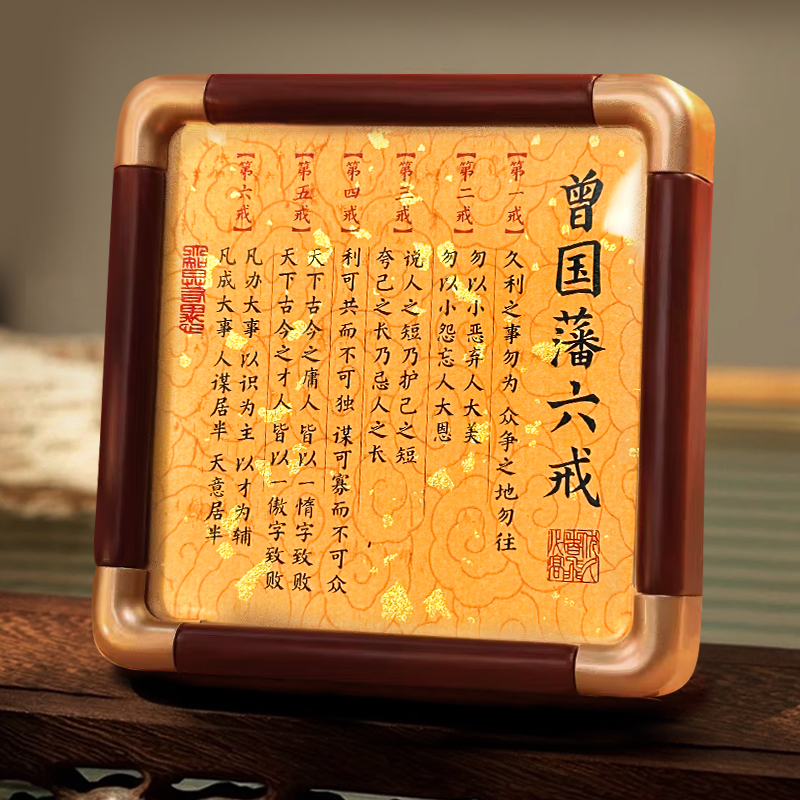 曾国藩六戒
【第一戒】
久利之事勿为 众争之地勿往
【第二戒】
勿以小恶弃人大美
勿以小怨忘人大恩
【第三戒】
说人之短乃护己之短
夸己之长乃忌人之长
【第四戒】
利可共而不可独 谋可寡而不可众
【第五戒】
天下古今之庸人 皆以一惰字致败
天下古今之才人 皆以一傲字致败
【第六戒】
凡办大事 以识为主 以才为辅
凡成大事 人谋居半 天意居半